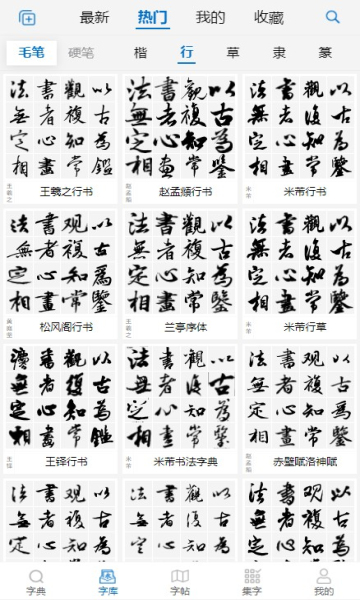 最新 热门 我的 收藏
毛笔 硬笔 楷 行 草 隶 篆
法書觀以
無者復古
定心知為
相畫常鑑
王羲之
王羲之行书
法書觀以
無者復古
定心知為
相畫常鑒
赵孟頫
赵孟頫行书
法書觀以
無者復古
定心知為
相畫常鑒
米芾
米芾行书
法書觀以
無者複古
定心知為
相畫常鑒
黄庭坚
松风阁行书
法書觀以
無者複古
定心知為
相畫常鑒
王羲之
兰亭序体
法書觀以
無者復古
定心知為
相畫常鑒
米芾
米芾行草
法書觀以
無者復古
定心知為
相畫常鑑
王铎
王铎行书
法書觀以
無者復古
定心知為
相畫常鑒
米芾书法字典
法书观以
無者復古
定心知為
相畫常鑒
赵孟頫
赤壁赋洛神赋
法書观以
無者復古
定心知為
法書觀以
無者復古
定心知為
法書观以
無者復古
定心知為
字典 字库 字帖 集字 我的